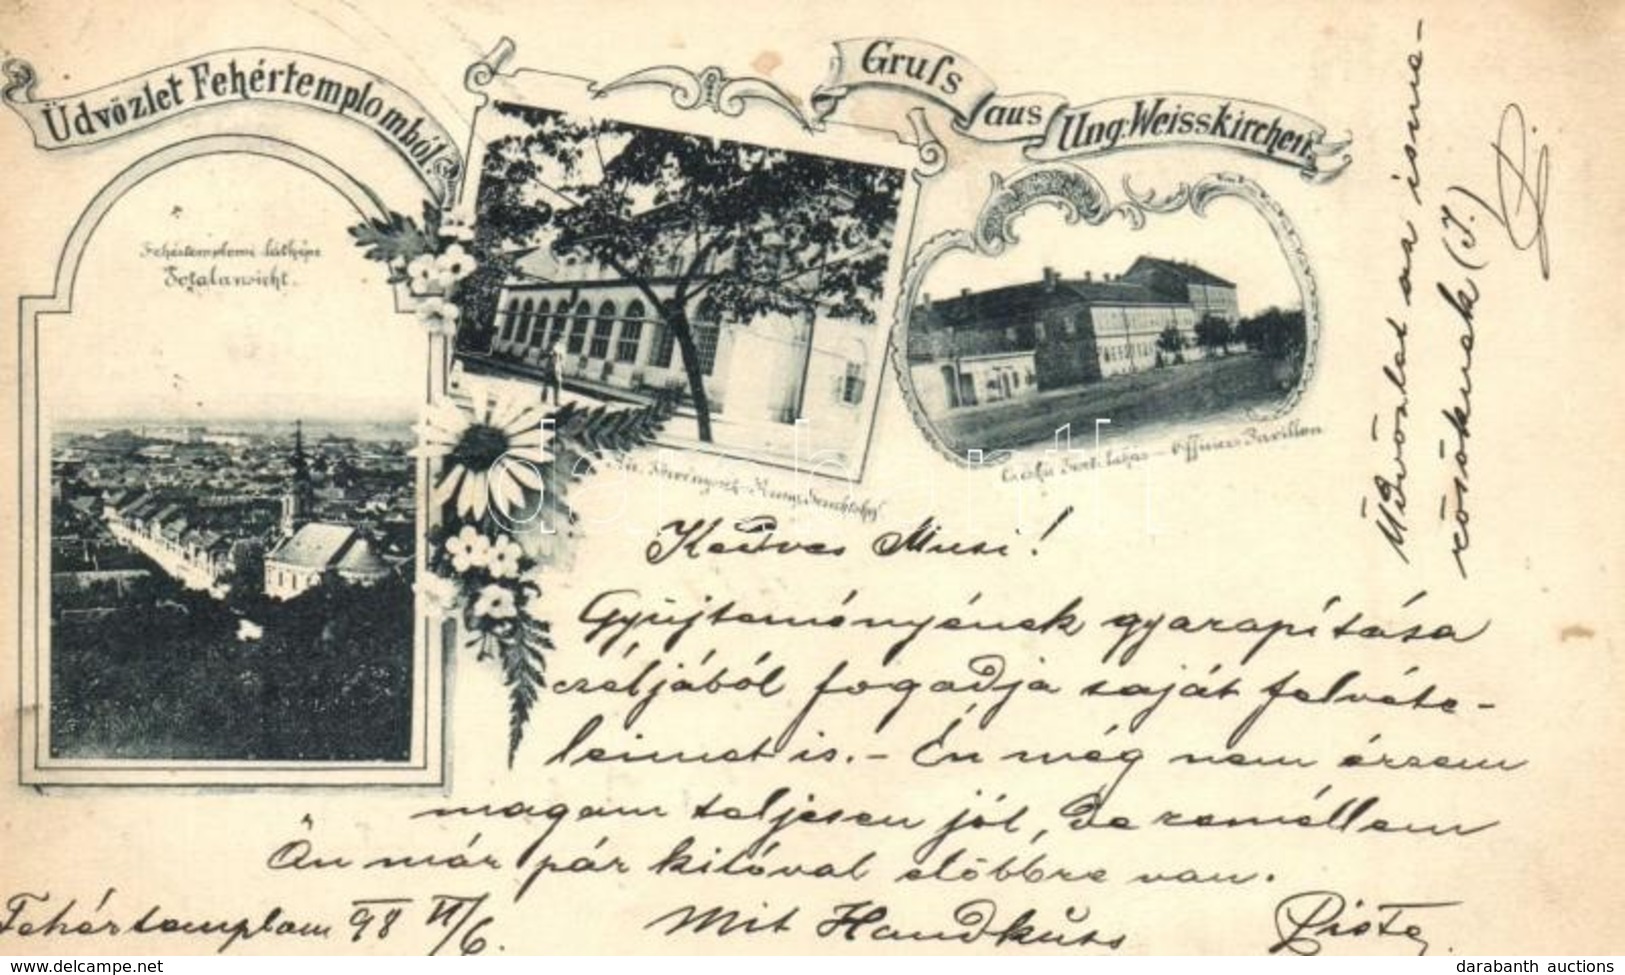 Üdvözlet Fehértemplomból.
Gruss aus Ung. Weisskirchen.
Fehértemplomi látképe
Totalansicht.
Kuns
Officiers Pavillon
Kedves Musi!
Gyüjteményének gyarapítása
czéljából fogadja saját felvéte-
leimet is. - Én még nem érzem
magam teljesen jól, de remélem
Ön már pár kilóval előbbre van.
Fehértemplom 98 VI/6.
Mit Handküss
Üdvözlet az isme-
rősöknek (T.)
darabanth
darabanth auctions
delcampe.net